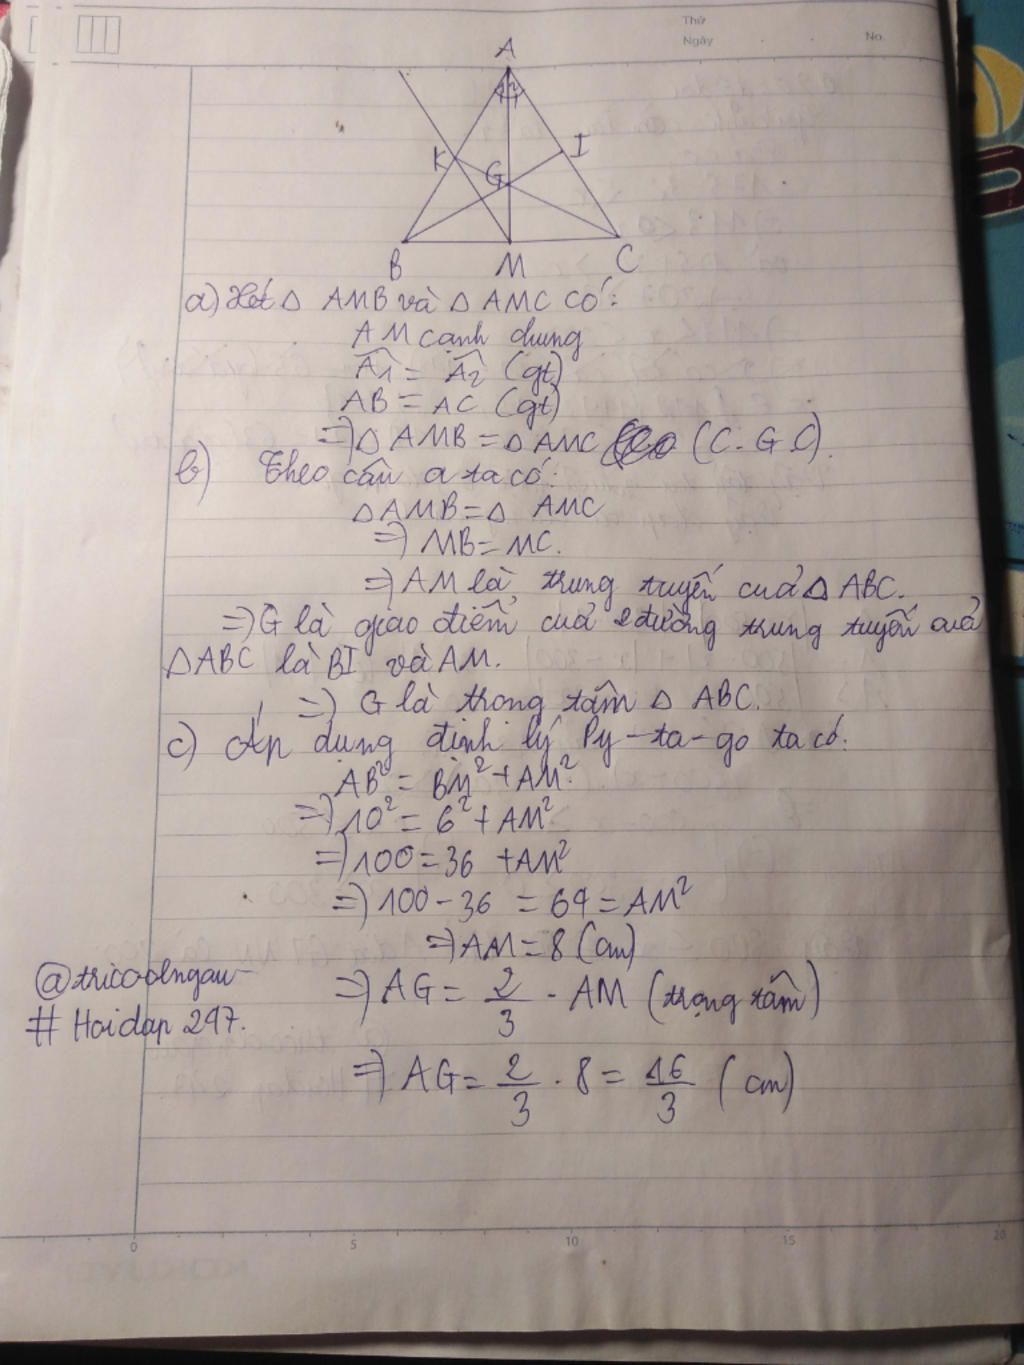 Thứ
Ngày
No.
A
K
I
G
B
M
C
a) Xét △ AMB và △ AMC có:
AM cạnh chung
Â1 = Â2 (gt)
AB = AC (gt)
=> △ AMB = △ AMC (C.G.C).
b) Theo câu a ta có:
△AMB = △ AMC
=> MB = MC.
=> AM là trung tuyến cuả △ ABC.
=> G là giao điểm cuả 2 đường trung tuyến cuả
△ABC là BI và AM.
=> G là trong tâm △ ABC.
c) Áp dung định lý Py-ta-go ta có:
AB² = BM² + AM².
=> 10² = 6² + AM²
=> 100 = 36 + AM²
=> 100 - 36 = 64 = AM²
=> AM = 8 (cm)
=> AG = 2/3 . AM (trọng tâm)
@tricoolngau
# Hoidap 247.
=> AG = 2/3 . 8 = 16/3 (cm)
0 5 10 15 20